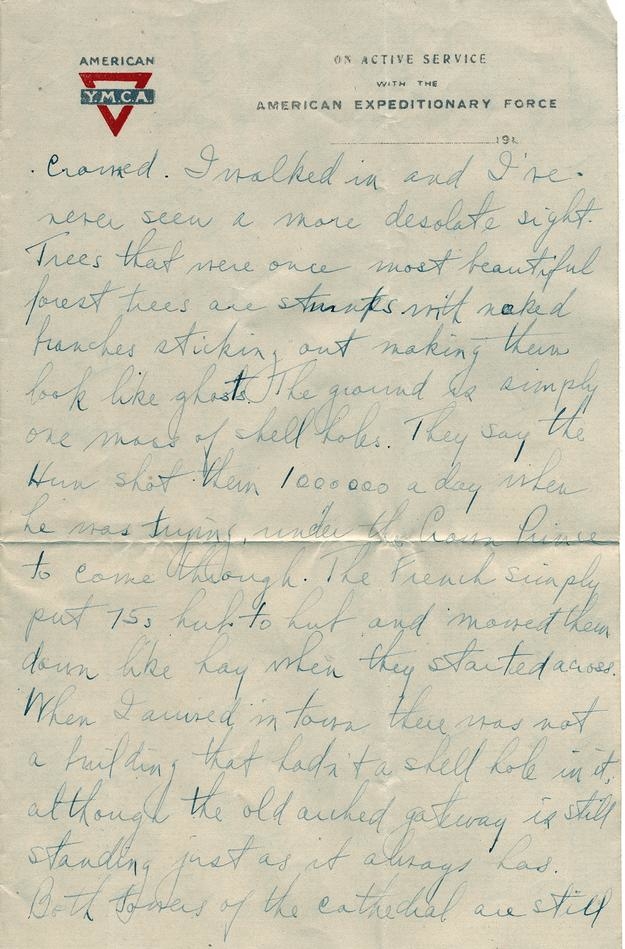 AMERICAN
Y.M.C.A.
ON ACTIVE SERVICE
WITH THE
AMERICAN EXPEDITIONARY FORCE
191
crowed. I walked in and I've
never seen a more desolate sight.
Trees that were once most beautiful
forest trees are stumps with naked
branches sticking out making them
look like ghosts. The ground is simply
one mass of shell holes. They say the
Hun shot them 1000000 a day when
he was trying, under the Crown Prince
to come through. The French simply
put 75s hub to hub and mowed them
down like hay when they started across.
When I arrived in town there was not
a building that hadn't a shell hole in it,
although the old arched gateway is still
standing just as it always has.
Both towers of the cathedral are still